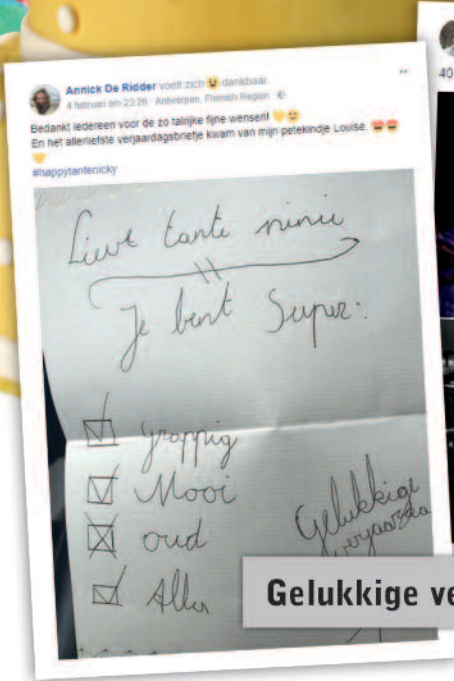 Annick De Ridder voelt zich 😀 dankbaar.
4 februari om 23:26 · Antwerpen, Flemish Region ·
Bedankt iedereen voor de zo talrijke fijne wensen! 💛😀
En het allerliefste verjaardagsbriefje kwam van mijn petekindje Louise. 😍😍
💛
#happytantenicky
Lieve tante ninie
Je bent Super:
grappig
Mooi
oud
Alles
Gelukkige
verjaarda
Gelukkige ve
40